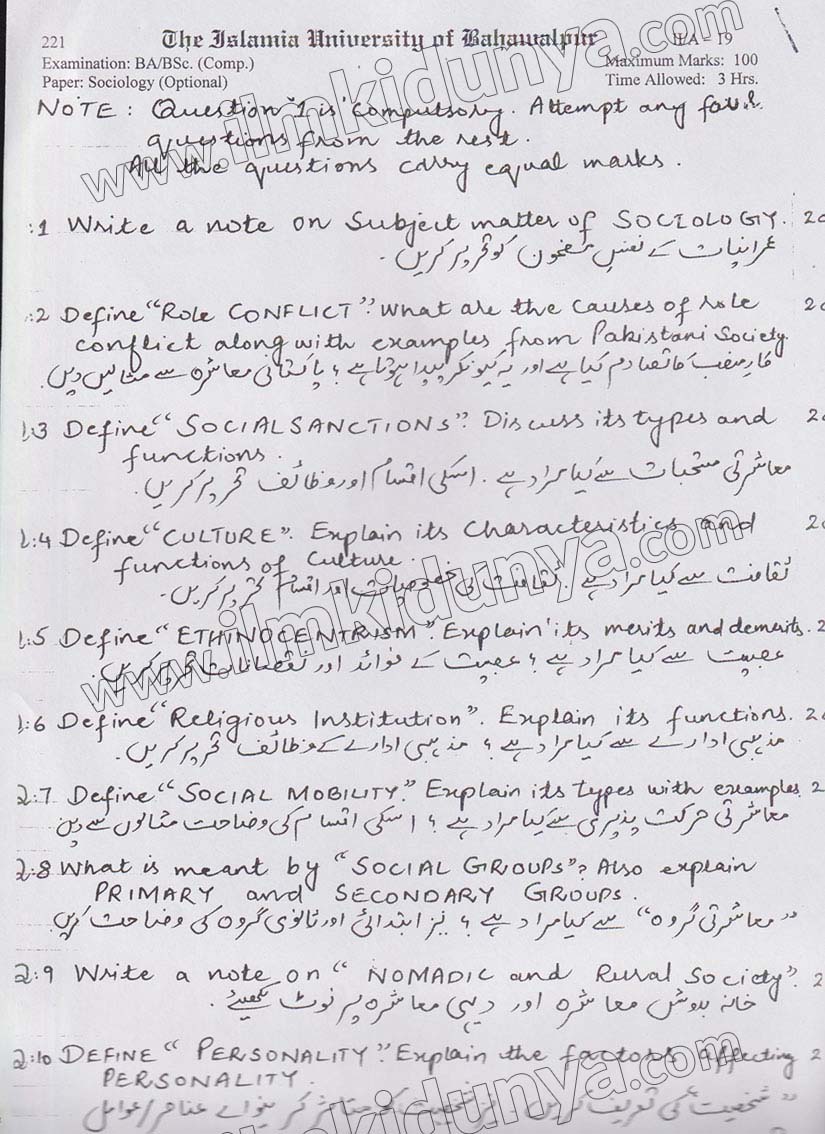 221 The Islamia University of Bahawalpur IIA - 19
Examination: BA/BSc. (Comp.) Maximum Marks: 100
Paper: Sociology (Optional) Time Allowed: 3 Hrs.
NOTE: Question 1 is compulsory. Attempt any four
questions from the rest.
All the questions carry equal marks.
:1 Write a note on Subject matter of SOCIOLOGY. 20
عمرانیات کے نفسِ مضمون کو تحریر کریں۔
:2 Define "Role CONFLICT". What are the causes of role
conflict along with examples from Pakistani Society.
تصادم کیا ہے اور یہ کیونکر پیدا ہوتا ہے؟ پاکستانی معاشرہ سے مثالیں دیں۔
:3 Define "SOCIAL SANCTIONS". Discuss its types and
functions.
معاشرتی سے کیا مراد ہے۔ اسکی اقسام اور وظائف تحریر کریں۔
:4 Define "CULTURE". Explain its characteristics and
functions of Culture.
ثقافت سے کیا مراد ہے۔ ثقافت کی خصوصیات اور اقسام تحریر کریں۔
:5 Define "ETHINOCENTRISM". Explain its merits and demerits.
عصبیت سے کیا مراد ہے؟ عصبیت کے فوائد اور نقصانات تحریر کریں۔
:6 Define "Religious Institution". Explain its functions.
مذہبی ادارے سے کیا مراد ہے؟ مذہبی ادارے کے وظائف تحریر کریں۔
2:7 Define "SOCIAL MOBILITY." Explain its types with examples.
معاشرتی حرکت پذیری سے کیا مراد ہے؟ اسکی اقسام کی وضاحت مثالوں سے دیں
2:8 What is meant by "SOCIAL GROUPS"? Also explain
PRIMARY and SECONDARY GROUPS.
"معاشرتی گروہ" سے کیا مراد ہے؟ نیز ابتدائی اور ثانوی گروہ کی وضاحت کریں
2:9 Write a note on "NOMADIC and Rural Society".
خانہ بدوش معاشرہ اور دیہی معاشرہ پر نوٹ لکھیئے۔
2:10 DEFINE "PERSONALITY". Explain the factors affecting
PERSONALITY.
"شخصیت" کی تعریف کریں۔ نیز شخصیت کو متاثر کرنیوالے عناصر/عوامل
www.ilmkidunya.com
www.ilmkidunya.com
www.ilmkidunya.com